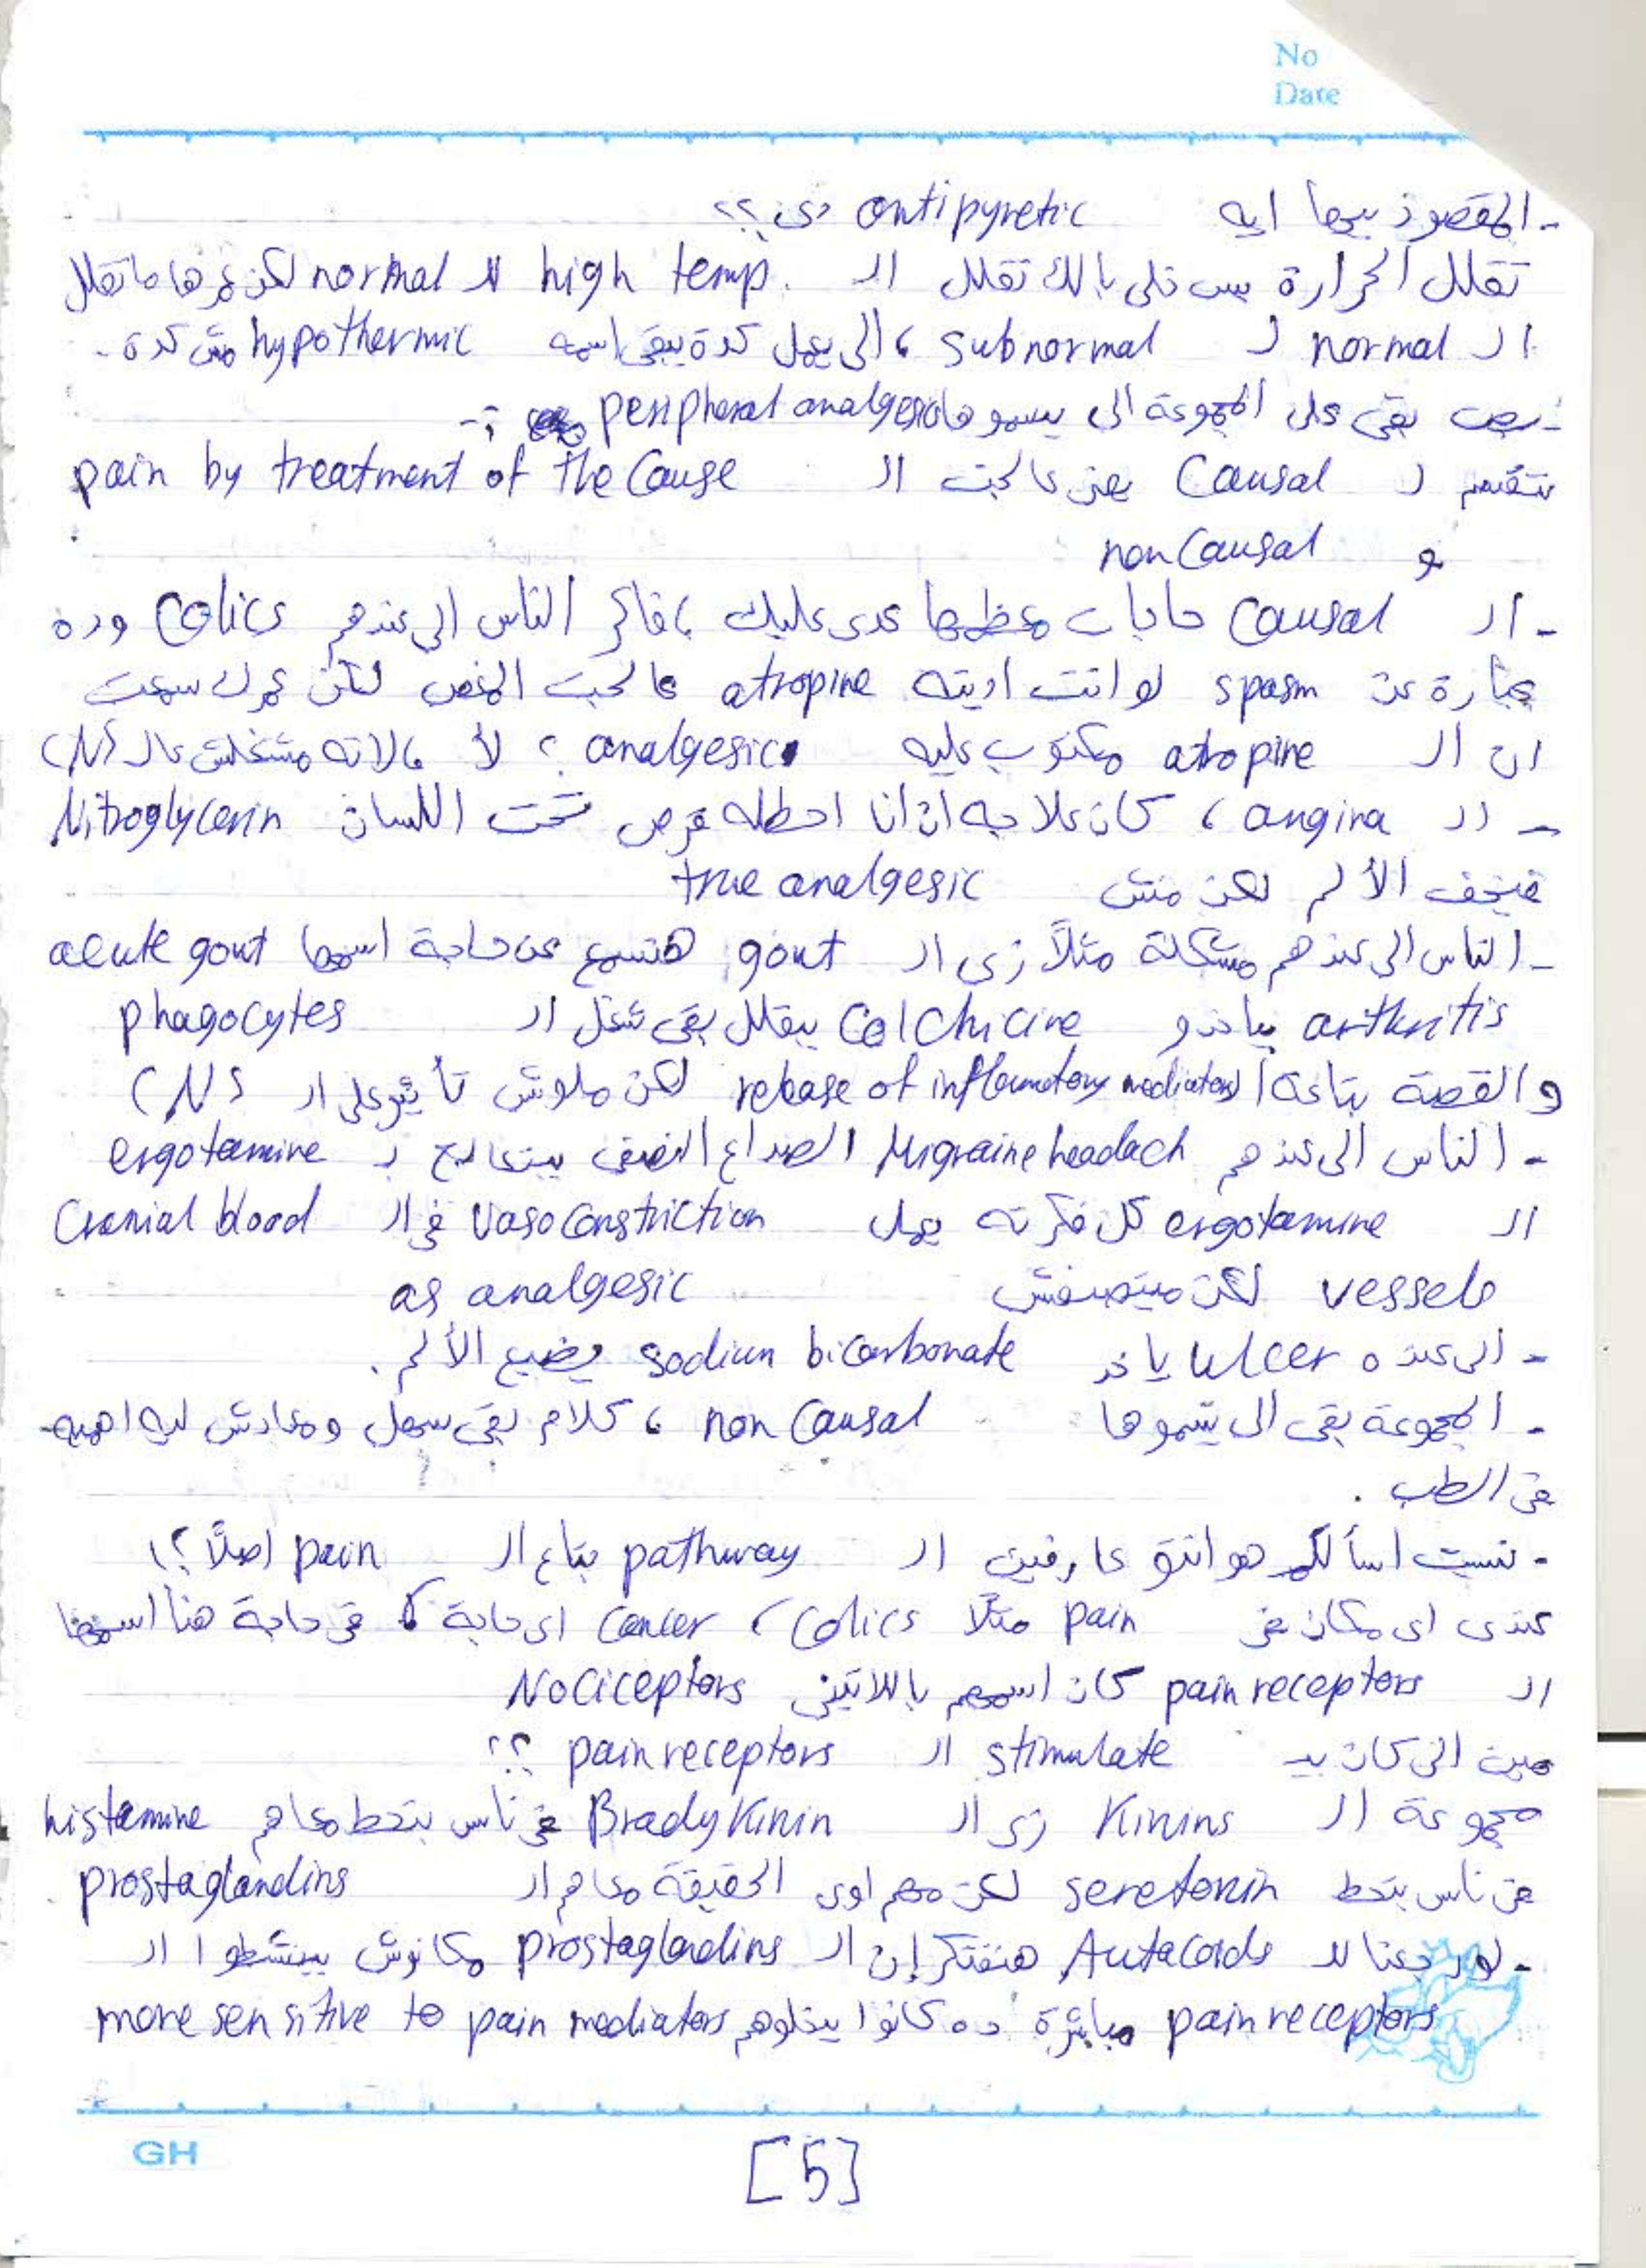 No
Date
- المقصود بيها ايه antipyretic دى ؟؟
تقلل الحرارة بس خلى بالك تقلل الـ high temp. للـ normal لكن عمرها ماتقلل
الـ normal لـ subnormal ، الى يعمل كدة يبقى اسمه hypothermic مش كدة .
- بص بقى على المجموعة الى بيسموها peripheral analgesics :-
تتقسم لـ Causal يعنى عالجت الـ pain by treatment of the Cause
و non Causal
- الـ Causal حاجات معظمها عدى عليك ، فاكر الناس الى عندهم Colics وده
عبارة عن spasm لو انت اديته atropine عالجت المغص لكن عمرك سمعت
ان الـ atropine مكتوب عليه analgesic ؟ لأ ، لانه مشتغلش عالـ CNS
- الـ angina ، كان علاجه ان انا احطله قرص تحت اللسان Nitroglycerin
فيخف الألم لكن مش true analgesic
- الناس الى عندهم مشكلة مثلاً زى الـ gout هتسمع عن حاجة اسمها acute gout
arthritis بياخدو Colchicine بيقلل بقى شغل الـ phagocytes
والقصة بتاعة الـ release of inflammatory mediators لكن ملوش تأثير على الـ CNS
- الناس الى عندهم Migraine headach الصداع النصفى بيتعالج بـ ergotamine
الـ ergotamine كل فكرته يعمل vasoconstriction فى الـ Cranial blood
vessels لكن ميتصنفش as analgesic
- الى عنده ulcer ياخد sodium bicarbonate يضيع الألم .
- المجموعة بقى الى يسموها non Causal ، كلام بقى سهل ومعادش ليه اهمية
فى الطب .
- نسيت اسألكم هو انتو عارفين الـ pathway بتاع الـ pain اصلاً ؟!
عندى اى مكان فى pain مثلا Colics ، Cancer اى حاجة فى حاجة هنا اسمها
الـ pain receptors كان اسمهم باللاتينى Nociceptors
مين الى كان بيـ stimulate الـ pain receptors ؟؟
مجموعة الـ Kinins زى الـ BradyKinin فى ناس بتحط معاهم histamine
فى ناس بتحط seretonin لكن مهم اوى الحقيقة معاهم الـ prostaglandins
- لو رجعنا للـ Autacoids هنفتكر إن الـ prostaglandins مكانوش بينشطوا الـ
pain receptors مباشرة ده كانوا بيخلوهم more sensitive to pain mediators
GH
[5]